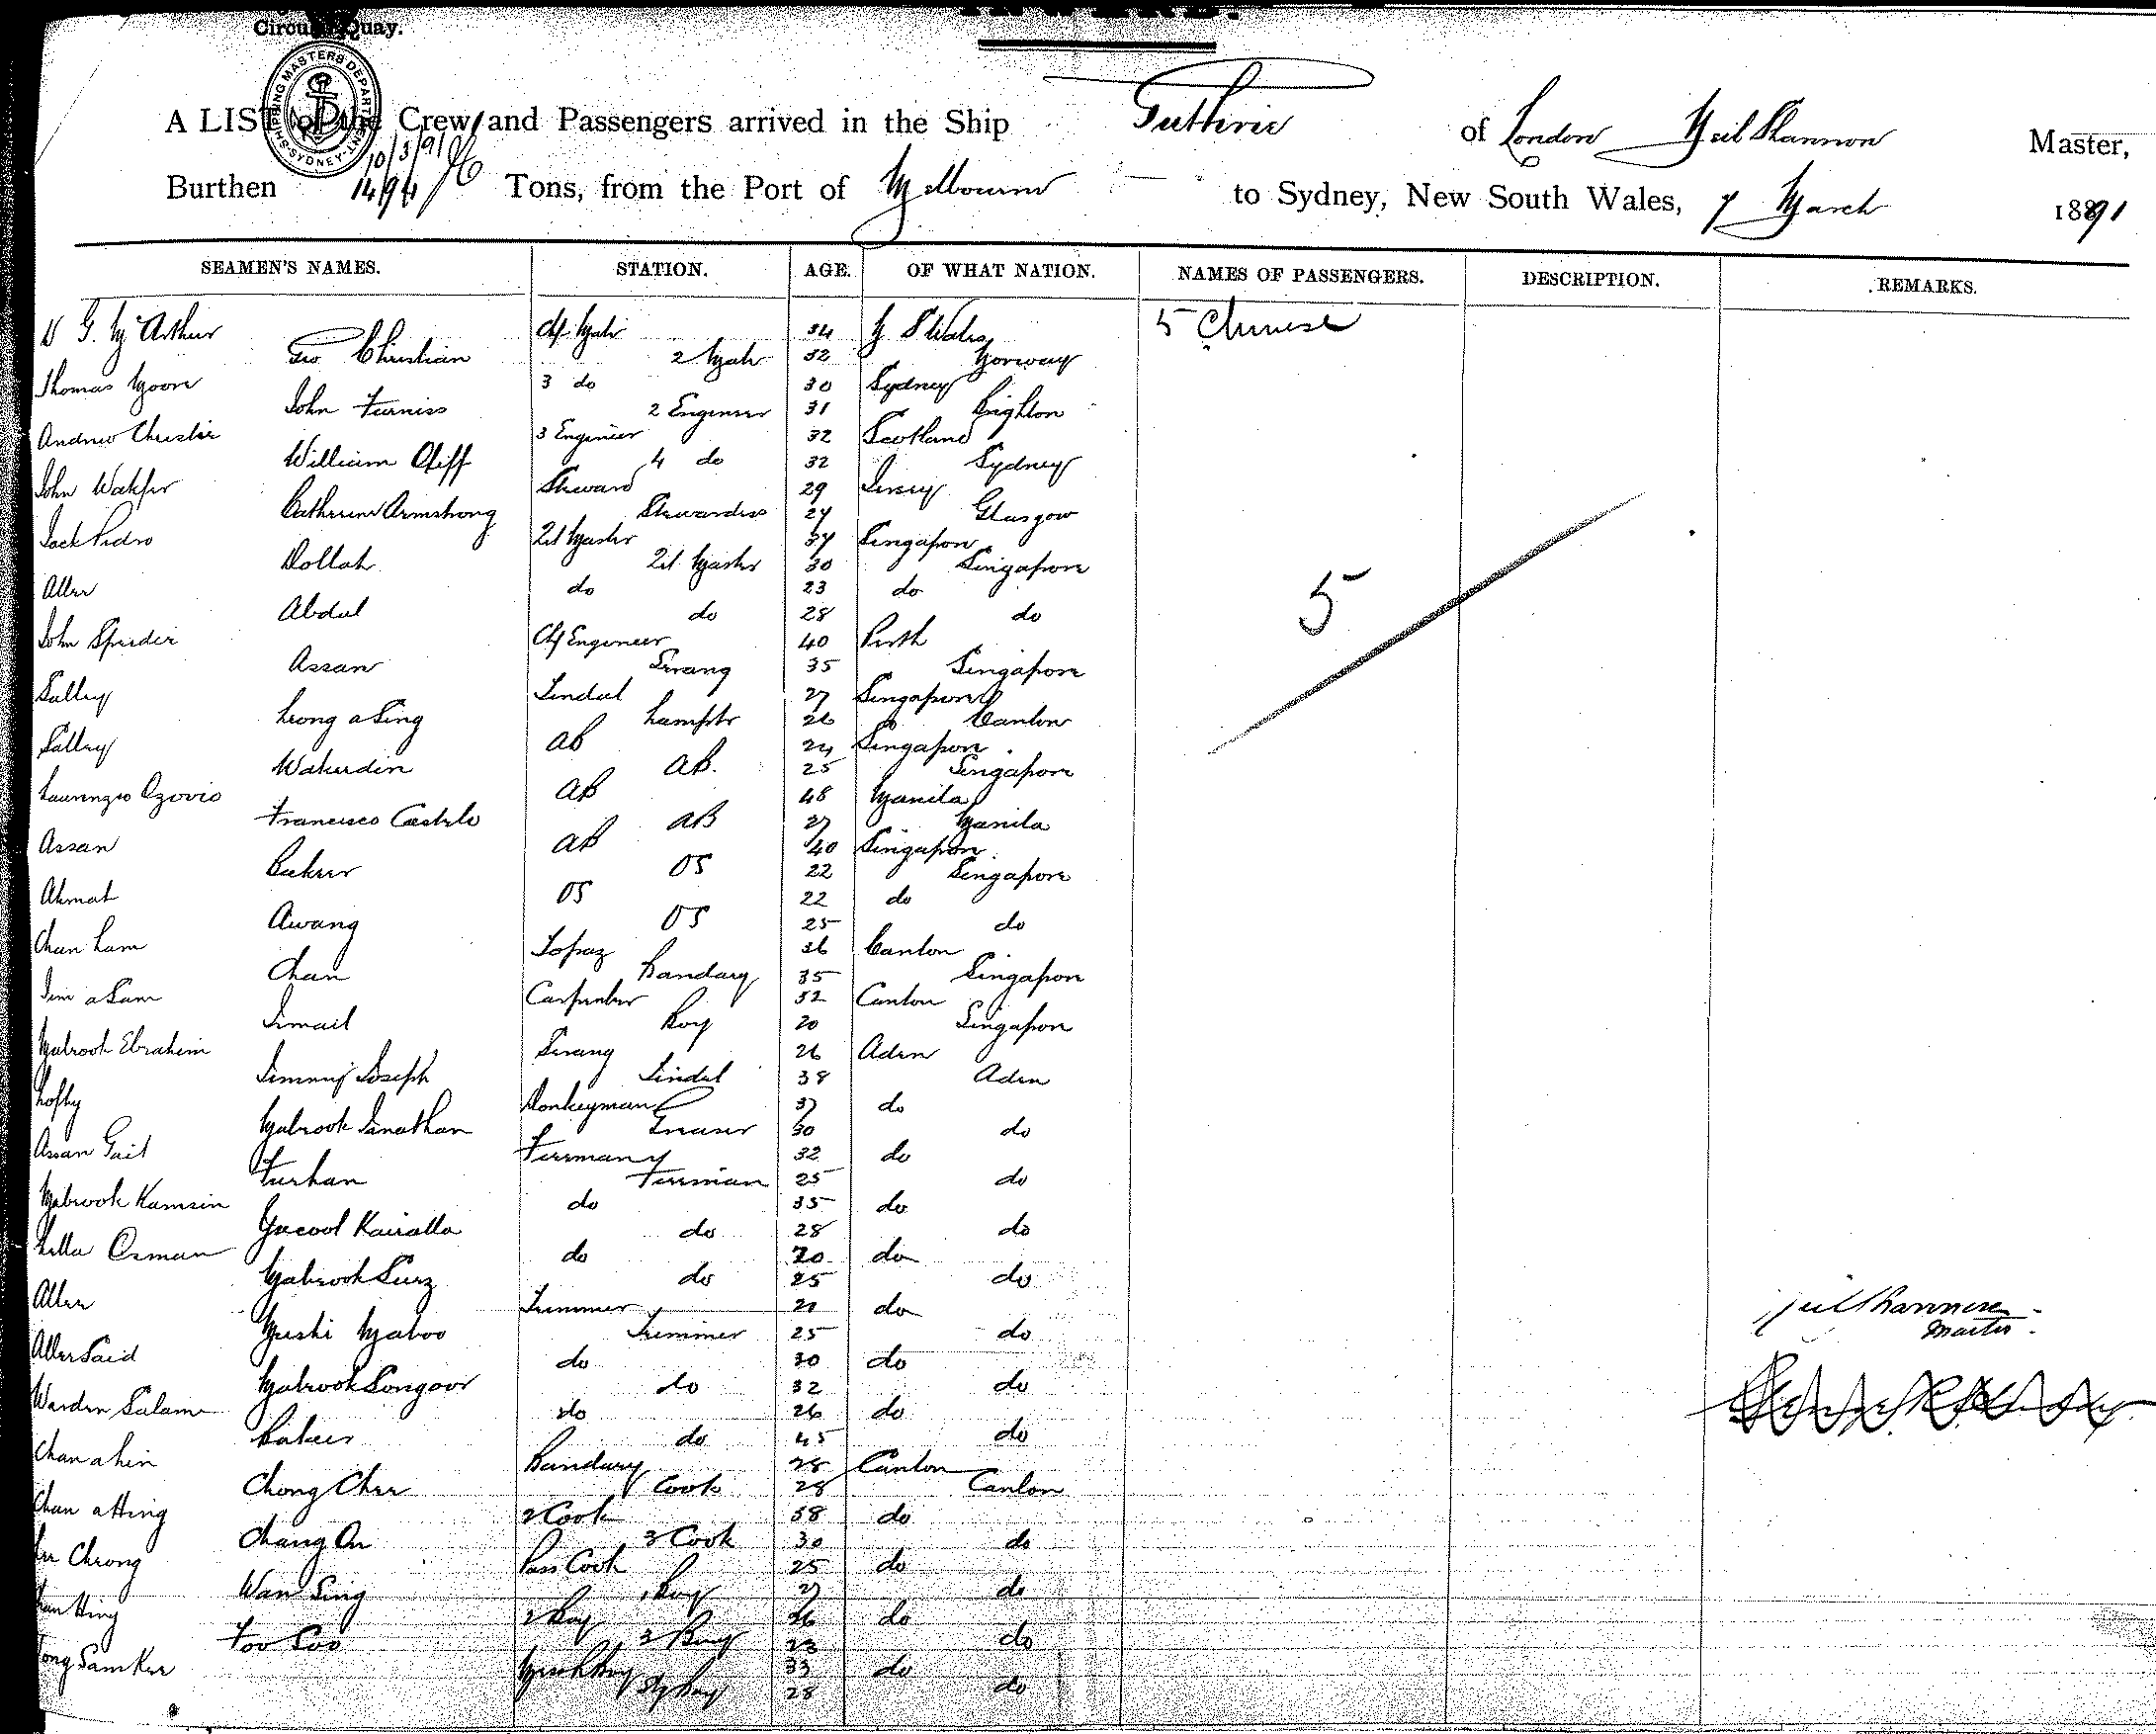 INWARD.
Circular Quay.
SHIPPING MASTERS DEPARTMENT SYDNEY
A LIST of the Crew and Passengers arrived in the Ship Guthrie of London Neil Shannon Master,
10/3/91
Burthen 1494 Tons, from the Port of Melbourne to Sydney, New South Wales, 7 March 1891
SEAMEN'S NAMES. STATION. AGE. OF WHAT NATION. NAMES OF PASSENGERS. DESCRIPTION. REMARKS.
D G McArthur Chf Mate 34 N S Wales 5 Chinese
Geo Christian 2 Mate 32 Norway
Thomas Moore 3 do 30 Sydney
John Furniss 2 Engineer 31 Brighton
Andrew Christie 3 Engineer 32 Scotland
William Cliff 4 do 32 Sydney
John Walker Steward 29 Jersey
Catherine Armstrong Stewardess 24 Glasgow
Jack Pedro Master 34 Singapore
Dollah Master 30 Singapore
Aller do 23 do
Abdul do 28 do
5
John Speeder Chf Engineer 40 Perth
Assan Serang 35 Singapore
Salley Tindal 27 Singapore
Leong a Sing Lamptr 26 do Canton
Salley AB 24 Singapore
Waherdin AB. 25 Singapore
Laurenzo Ozorio AB 48 Manila
Francisco Castelo AB 27 Manila
Assan AB 40 Singapore
Buker OS 22 Singapore
Ahmat OS 22 do
Awang OS 25 do
Chan Lam Topaz 36 Canton
Chan Bandary 35 Singapore
Jim a Sam Carpenter 32 Canton
Ismail Boy 20 Singapore
Mabrook Ebrahim Serang 26 Aden
Jimmy Joseph Tindal 38 Aden
Lofty Donkeyman 37 do
Mabrook Sanathan Greaser 30 do
Assan Gait Fireman 32 do
Furhan Fireman 25 do
Mabrook Kamsin do 35 do
Yacool Kairalla do 28 do
Lella Osman do 20 do
Mabrook Surz do 25 do
Aller Trimmer 21 do
Mushi Maboo Trimmer 25 do
Aller Said do 30 do
Mabrook Songoor do 32 do
Warden Salam do 26 do
Baker do 45 do
Chan a hin Bandary 28 Canton
Chong Chee Cook 28 Canton
Chan a Hing 2 Cook 38 do
Chang On 3 Cook 30 do
Cheong Pass Cook 25 do
Wan Sing 1 Boy 27 do
Hing 2 Boy 26 do
Foo Coo 3 Boy 23 do
Sam Kee Mess Boy 33 do
Boy 28 do
Neil Shannon
Master